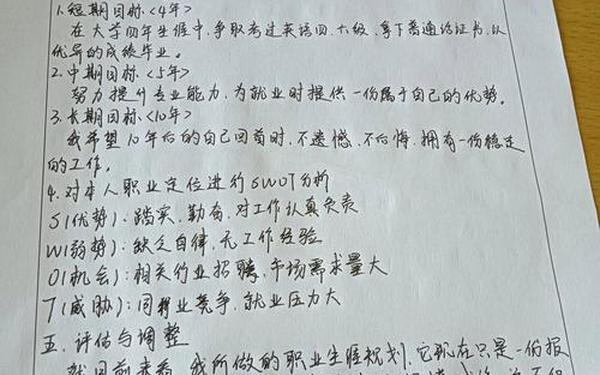 1.短期目标<4年>
在大学四年生涯中,争取考过英语四、六级,拿下普通话证书,以
优异的成绩毕业。
2.中期目标<5年>
努力提升专业能力,为就业时提供一份属于自己的优势。
3.长期目标<10年>
我希望10年后的自己回首时,不遗憾,不后悔,拥有一份稳定
的工作。
4.对本人职业定位进行SWOT分析
S(优势):踏实,勤奋,对工作认真负责
W(弱势):缺乏自律,无工作经验
O(机会):相关行业招聘,市场需求量大
T(威胁):同行业竞争,就业压力大
五、评估与调整
就目前来看,我所做的职业生涯规划,它现在只是一份报